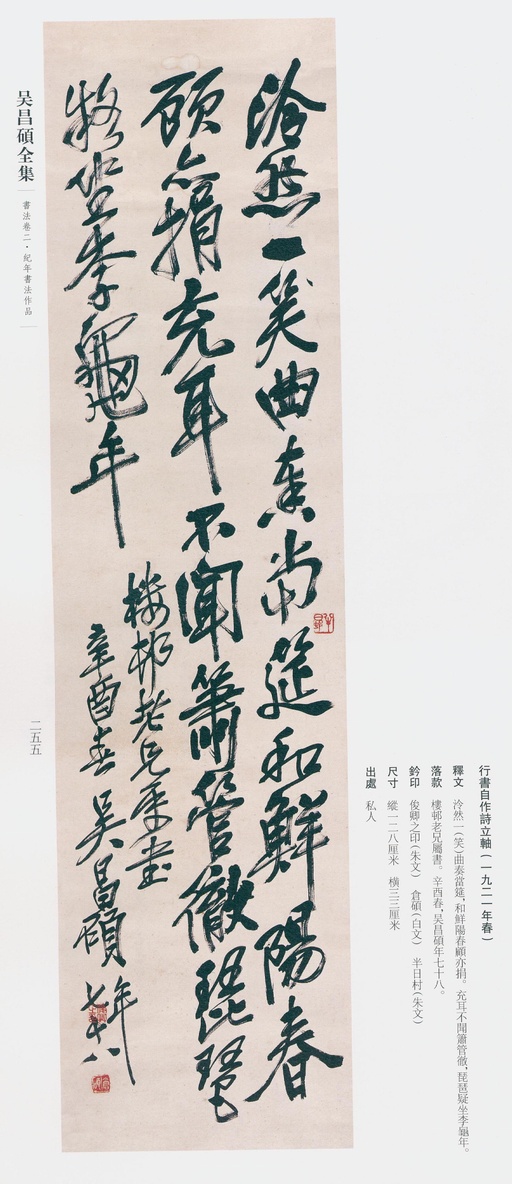 行書自作詩立軸（一九二一年春）
釋文　泠然一（笑）曲奏當筵，和鮮陽春顧亦捐。充耳不聞簫管徹，琵琶疑坐李龜年。
落款　樓邨老兄屬書。辛酉春，吴昌碩年七十八。
鈐印　俊卿之印（朱文）　倉碩（白文）　半日村（朱文）
尺寸　縱一二八厘米　橫三三厘米
出處　私人
泠然一笑曲奏當筵和鮮陽春
顧亦捐充耳不聞簫管徹琵琶
疑坐李龜年
樓邨老兄属書
辛酉春吴昌碩年七十八
半日邨
吴昌碩全集
書法卷二·紀年書法作品
二五五